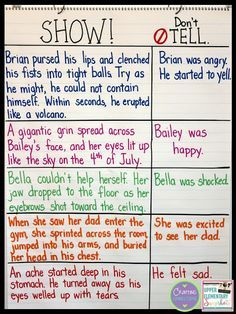 SHOW!
Don't
TELL.
Brian pursed his lips and clenched
his fists into tight balls. Try as
he might, he could not contain
himself. Within seconds, he erupted
like a volcano.
Brian was angry.
He started to yell.
A gigantic grin spread across
Bailey's face, and her eyes lit up
like the sky on the 4th of July.
Bailey was
happy.
Bella couldn't help herself. Her
jaw dropped to the floor as her
eyebrows shot toward the ceiling.
Bella was shocked.
When she saw her dad enter the
gym, she sprinted across the room,
jumped into his arms, and buried
her head in his chest.
She was excited
to see her dad.
An ache started deep in his
stomach. He turned away as his
eyes welled up with tears.
He felt sad.
Crafting
Connections
UPPER
ELEMENTARY
Snapshots